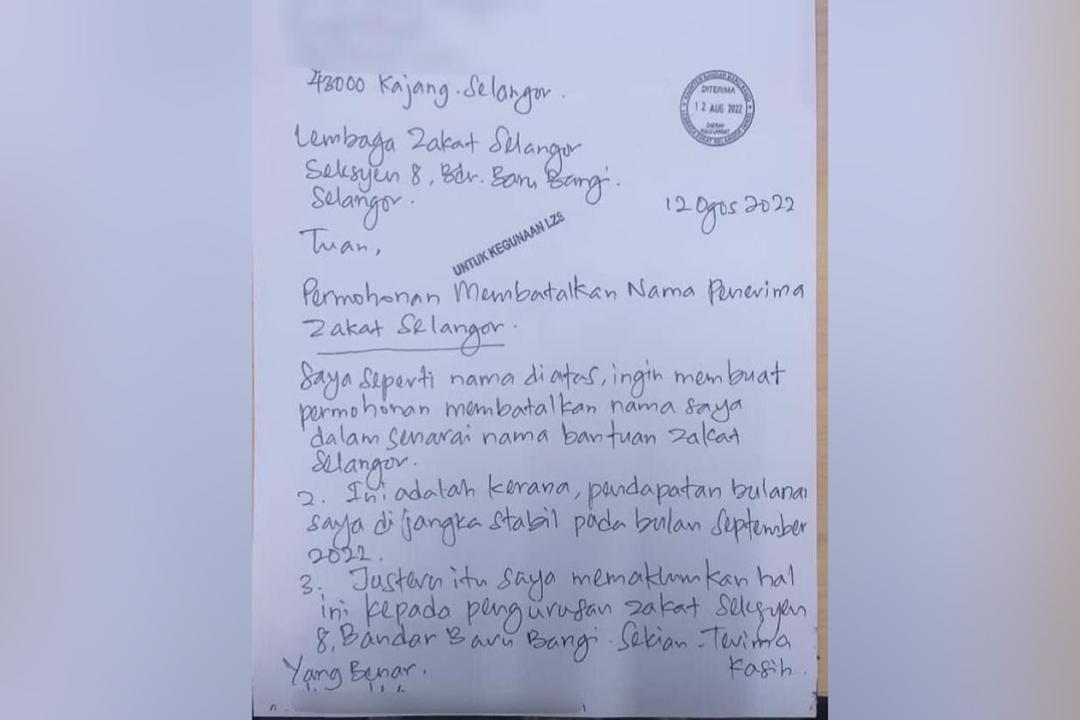 43000 Kajang. Selangor.
DITERIMA
12 AUG 2022
Lembaga Zakat Selangor
Seksyen 8, Bdr. Baru Bangi.
Selangor.
12 Ogos 2022
Tuan,
UNTUK KEGUNAAN LZS
Permohonan Membatalkan Nama Penerima
Zakat Selangor.
Saya seperti nama diatas, ingin membuat
permohonan membatalkan nama saya
dalam senarai nama bantuan zakat
Selangor.
2. Ini adalah kerana, pendapatan bulanan
saya dijangka stabil pada bulan September
2022.
3. Justeru itu saya memaklumkan hal
ini kepada pengurusan zakat Seksyen
8, Bandar Baru Bangi. Sekian - Terima
Kasih.
Yang Benar.